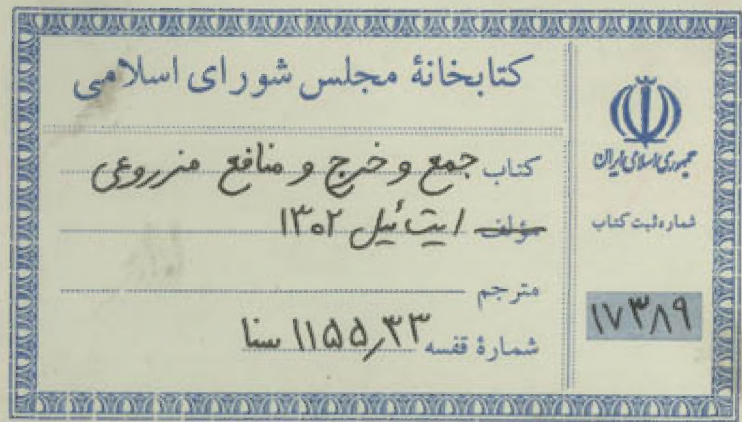 کتابخانهٔ مجلس شورای اسلامی
کتاب جمع و خرج و منافع مزروعی
مؤلف ایت ئیل ۱۳۰۲
مترجم
شمارهٔ قفسه ۱۱۵۵٫۳۳ سنا
جمهوری اسلامی ایران
شماره ثبت کتاب
۱۷۳۸۹